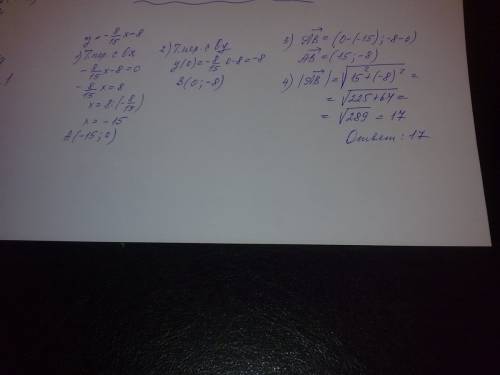 y = -8/15 x - 8
1) Т. пер. с Ox
-8/15 x - 8 = 0
-8/15 x = 8
x = 8 : (-8/15)
x = -15
A(-15; 0)
2) Т. пер. с Oy
y(0) = -8/15 · 0 - 8 = -8
B(0; -8)
3) AB = (0-(-15); -8-0)
AB = (15; -8)
4) |AB| = √15² + (-8)² =
= √225+64 =
= √289 = 17
Ответ: 17